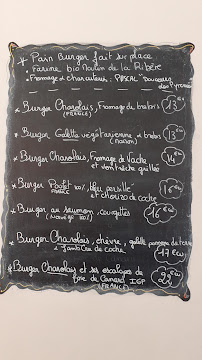 * Pain Burger fait sur place
- Farine bio Moulin de la Ribère
- Fromage et charcuterie : "PASCAL" Douceurs des Pyrénées
* Burger Charolais, Fromage de brebis 13€
(FRANCE)
* Burger Galette végétarienne, brebis 13€
(maison)
* Burger Charolais, Fromage de Vache 14€
et ventrèche grillée
* Burger Poulet, bleu persillé 16€
et chorizo de coche
* Burger au saumon, courgettes 16€
* Burger Charolais, chèvre, galette pomme de terre
et Jambon de coche 17€
* Burger Charolais et ses escalopes de
foie de Canard IGP
(FRANCE)